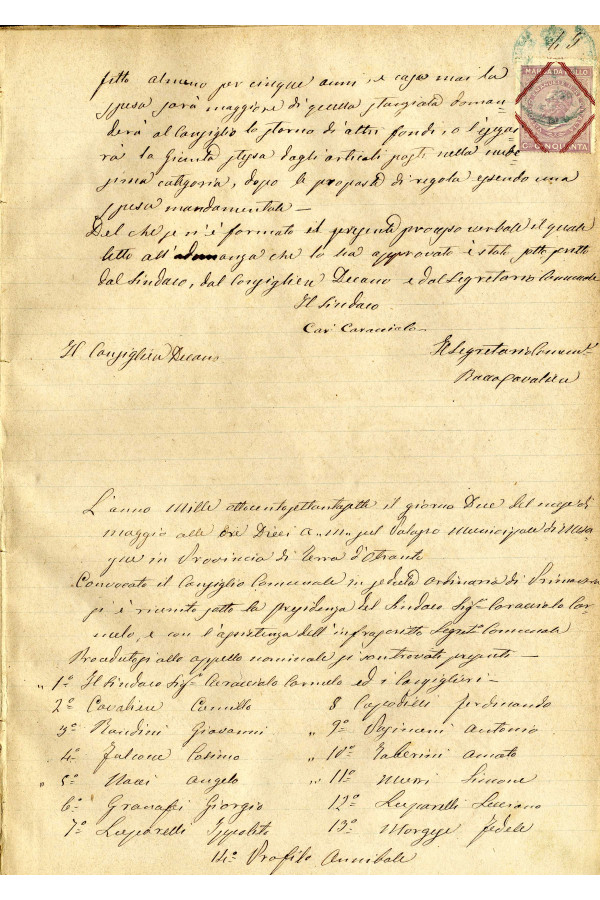 49
MARCA DA BOLLO
C. CINQUANTA
fitto almeno per cinque anni, e caso mai la
spesa sarà maggiore di quella stanziata doman=
derà al Consiglio lo storno di altri fondi, o
rà la Giunta stessa dagli articoli posti nella mede
sima categoria, dopo le proposte di regola essendo una
spesa mandamentale —
Del che se n'è formato il presente processo verbale il quale
letto all'adunanza che lo ha approvato è stato sottoscritto
dal Sindaco, dal Consigliere Decano e dal Segretario Comunale
Il Sindaco
Cav. Caracciolo
Il Consigliere Decano
Il Segretario Comun.le
Cavaliere
L'anno Mille ottocentosettantasette il giorno Due del mese di
maggio alle ore Dieci a. m. sul Palazzo Municipale di Mesa
gne in Provincia di Terra d'Otranto
Convocato il Consiglio Comunale in seduta ordinaria di Primavera
si è riunito sotto la presidenza del Sindaco Sig.r Caracciolo Car-
melo, e con l'assistenza dell'infrascritto Segret.o Comunale
Procedutosi allo appello nominale si son trovati presenti —
„ 1º Il Sindaco Sig.r Caracciolo Carmelo ed i Consiglieri —
2º Cavaliere Camillo
8 Capodieci Ferdinando
3º Nandini Giovanni
„ 9º Antonio
4º Falcone Cosimo
„ 10º Taberini Amato
„ 5º Macei Angelo
„ 11º Murri Simone
6º Granafei Giorgio
12º Luparelli Luciano
7º Luparelli Ippolito
13º Morgese Fedele
14º Profilo Annibale